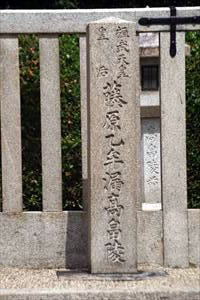 桓武天皇
皇后
藤原乙牟漏高畠陵